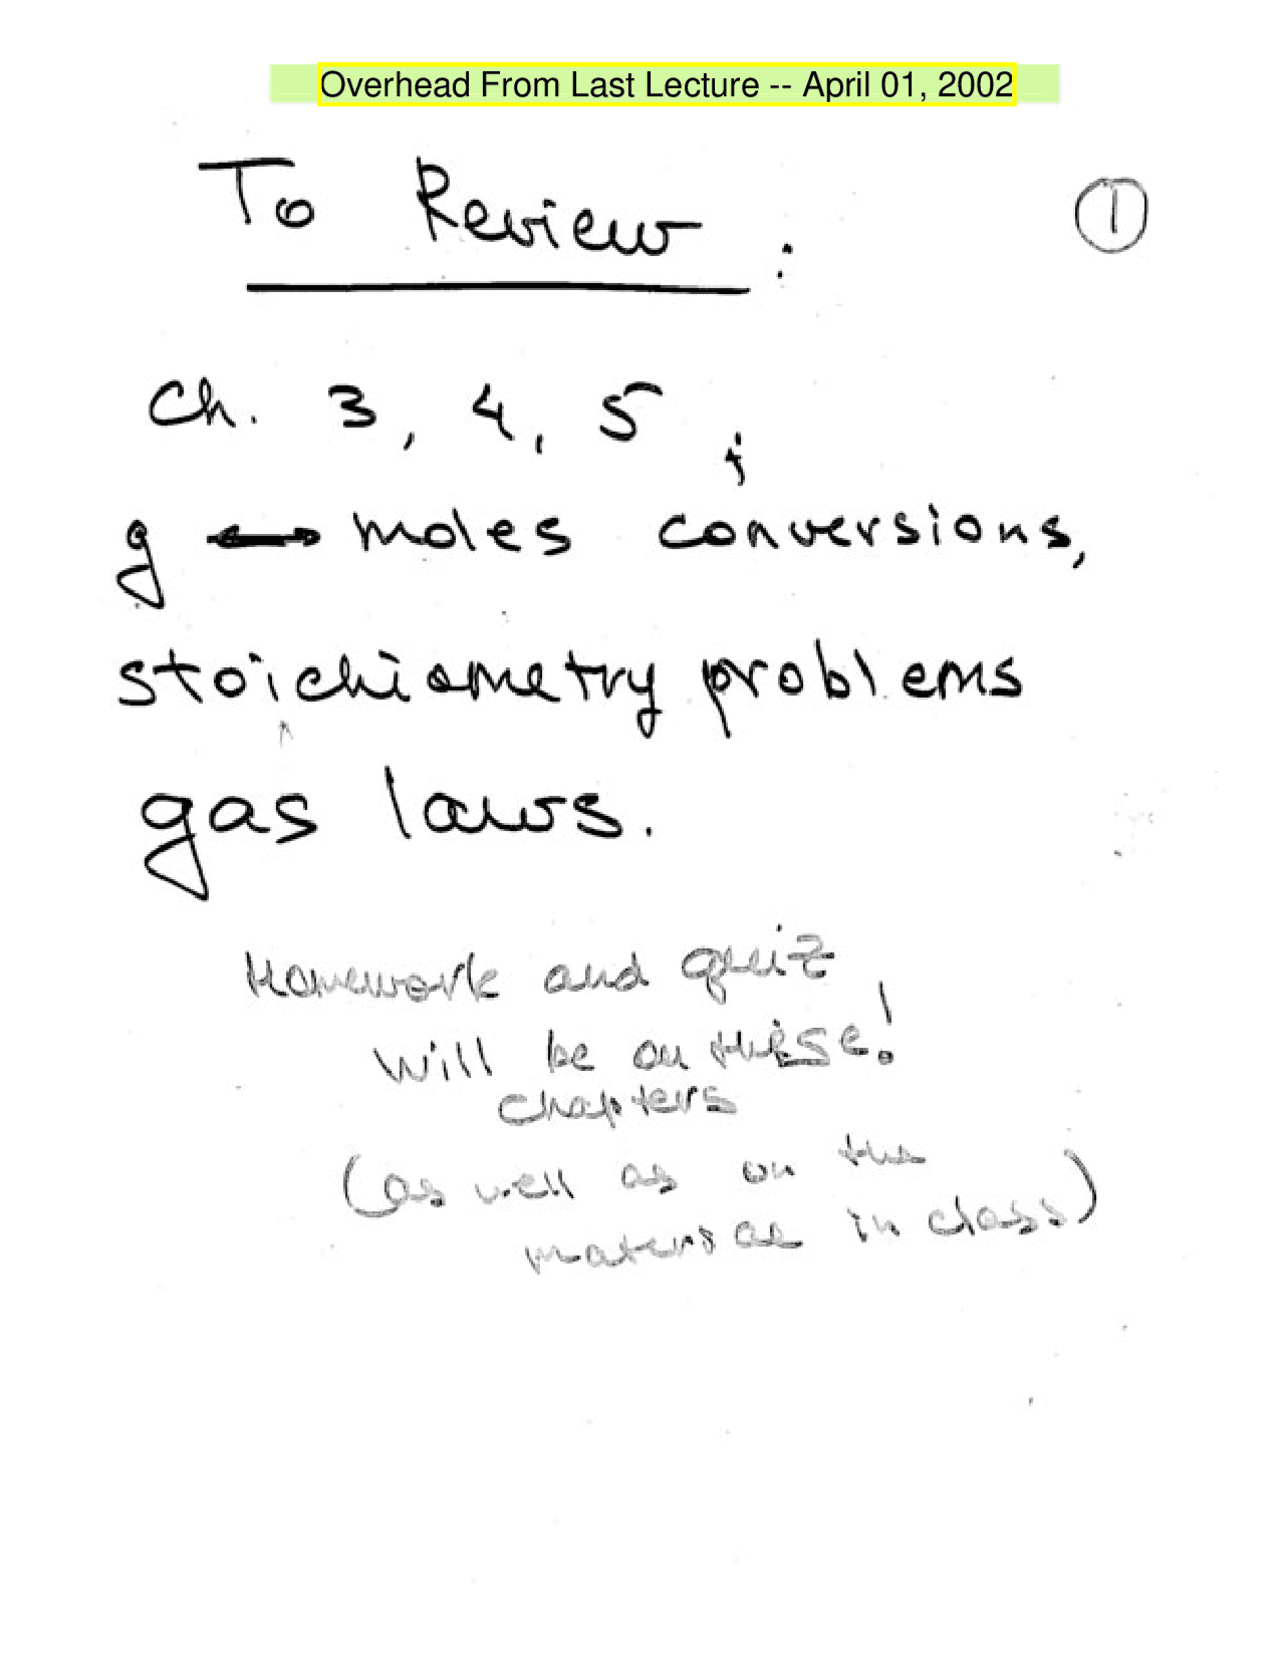 Overhead From Last Lecture -- April 01, 2002
To Review :
①
Ch. 3, 4, 5 ;
g ↔ moles conversions,
stoichiometry problems
gas laws.
Homework and quiz
will be on these!
chapters
(as well as on the
material in class)